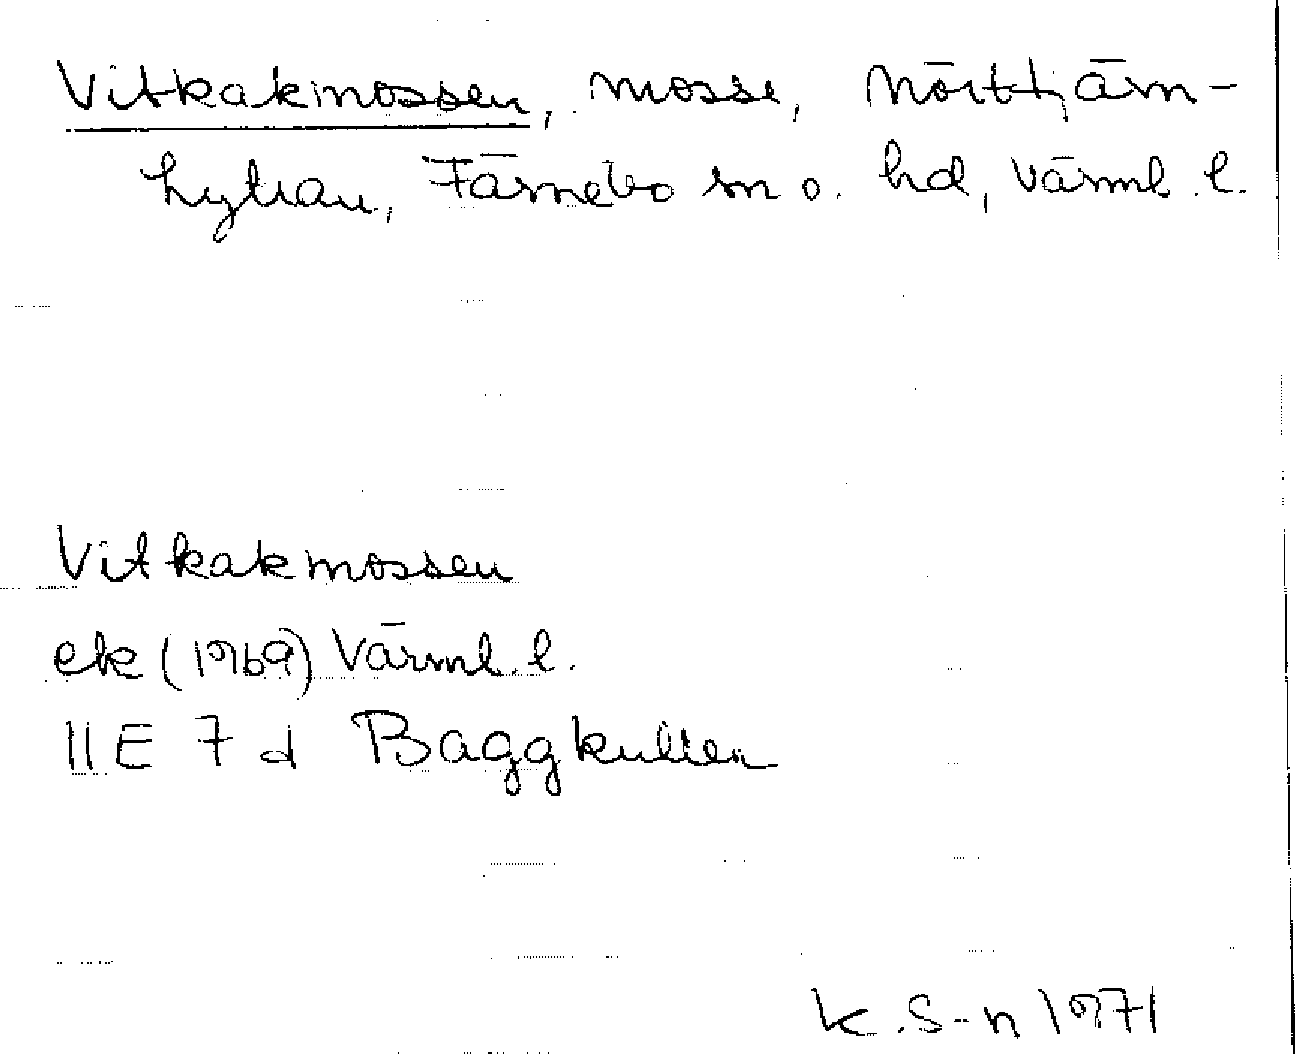 Vitkakmossen, mosse, Mörttjärn-
hyttan, Färnebo sn o. hd, Värml. l.
Vitkakmossen
ek (1969) Värml. l.
11E 7d Baggkullen
K. S-n 1971